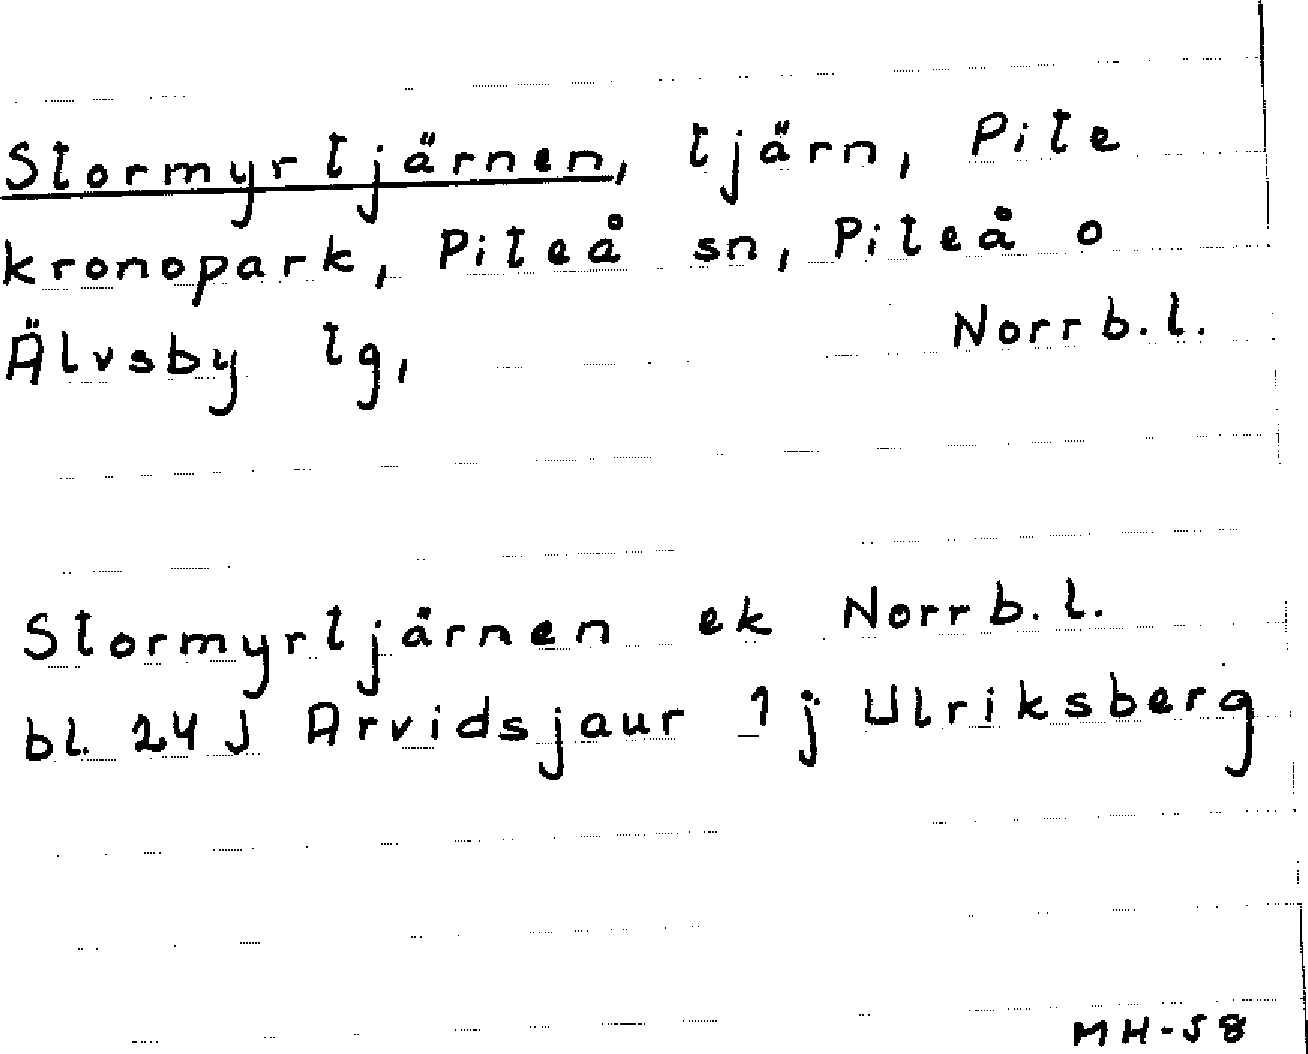 Stormyrtjärnen, tjärn, Pite
kronopark, Piteå sn, Piteå o
Älvsby tg, Norrb.l.
Stormyrtjärnen ek Norrb.l.
bl. 24 J Arvidsjaur 1 j Ulriksberg
MH-58